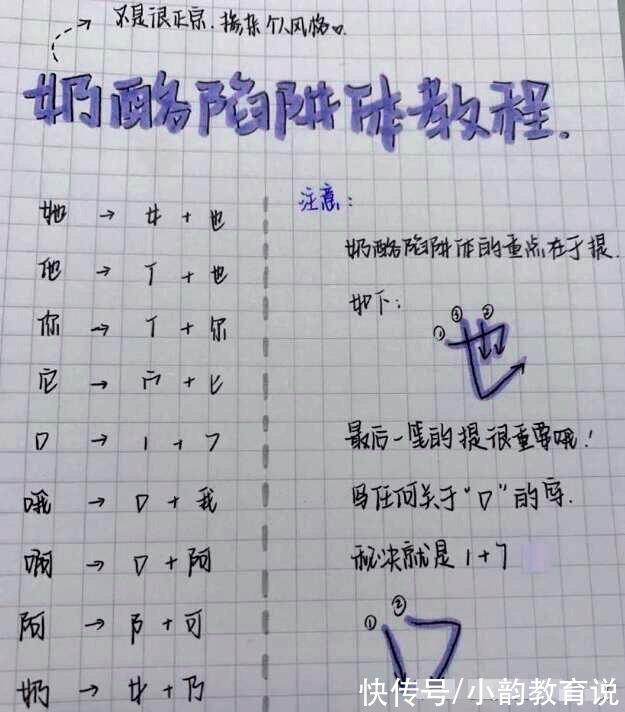 不是很正宗.掺杂个人风格
奶酪陷阱体教程.
她 → 女 + 也
他 → 亻 + 也
你 → 亻 + 尔
它 → 宀 + 匕
口 → 1 + 7
哦 → 口 + 我
啊 → 口 + 阿
阿 → 阝 + 可
奶 → 女 + 乃
注意:
奶酪陷阱体的重点在于提.
如下:
① ③ ②
也
最后一笔的提很重要哦!
写任何关于“口”的字.
秘诀就是 1+7
① ②
口
快传号/小韵教育说